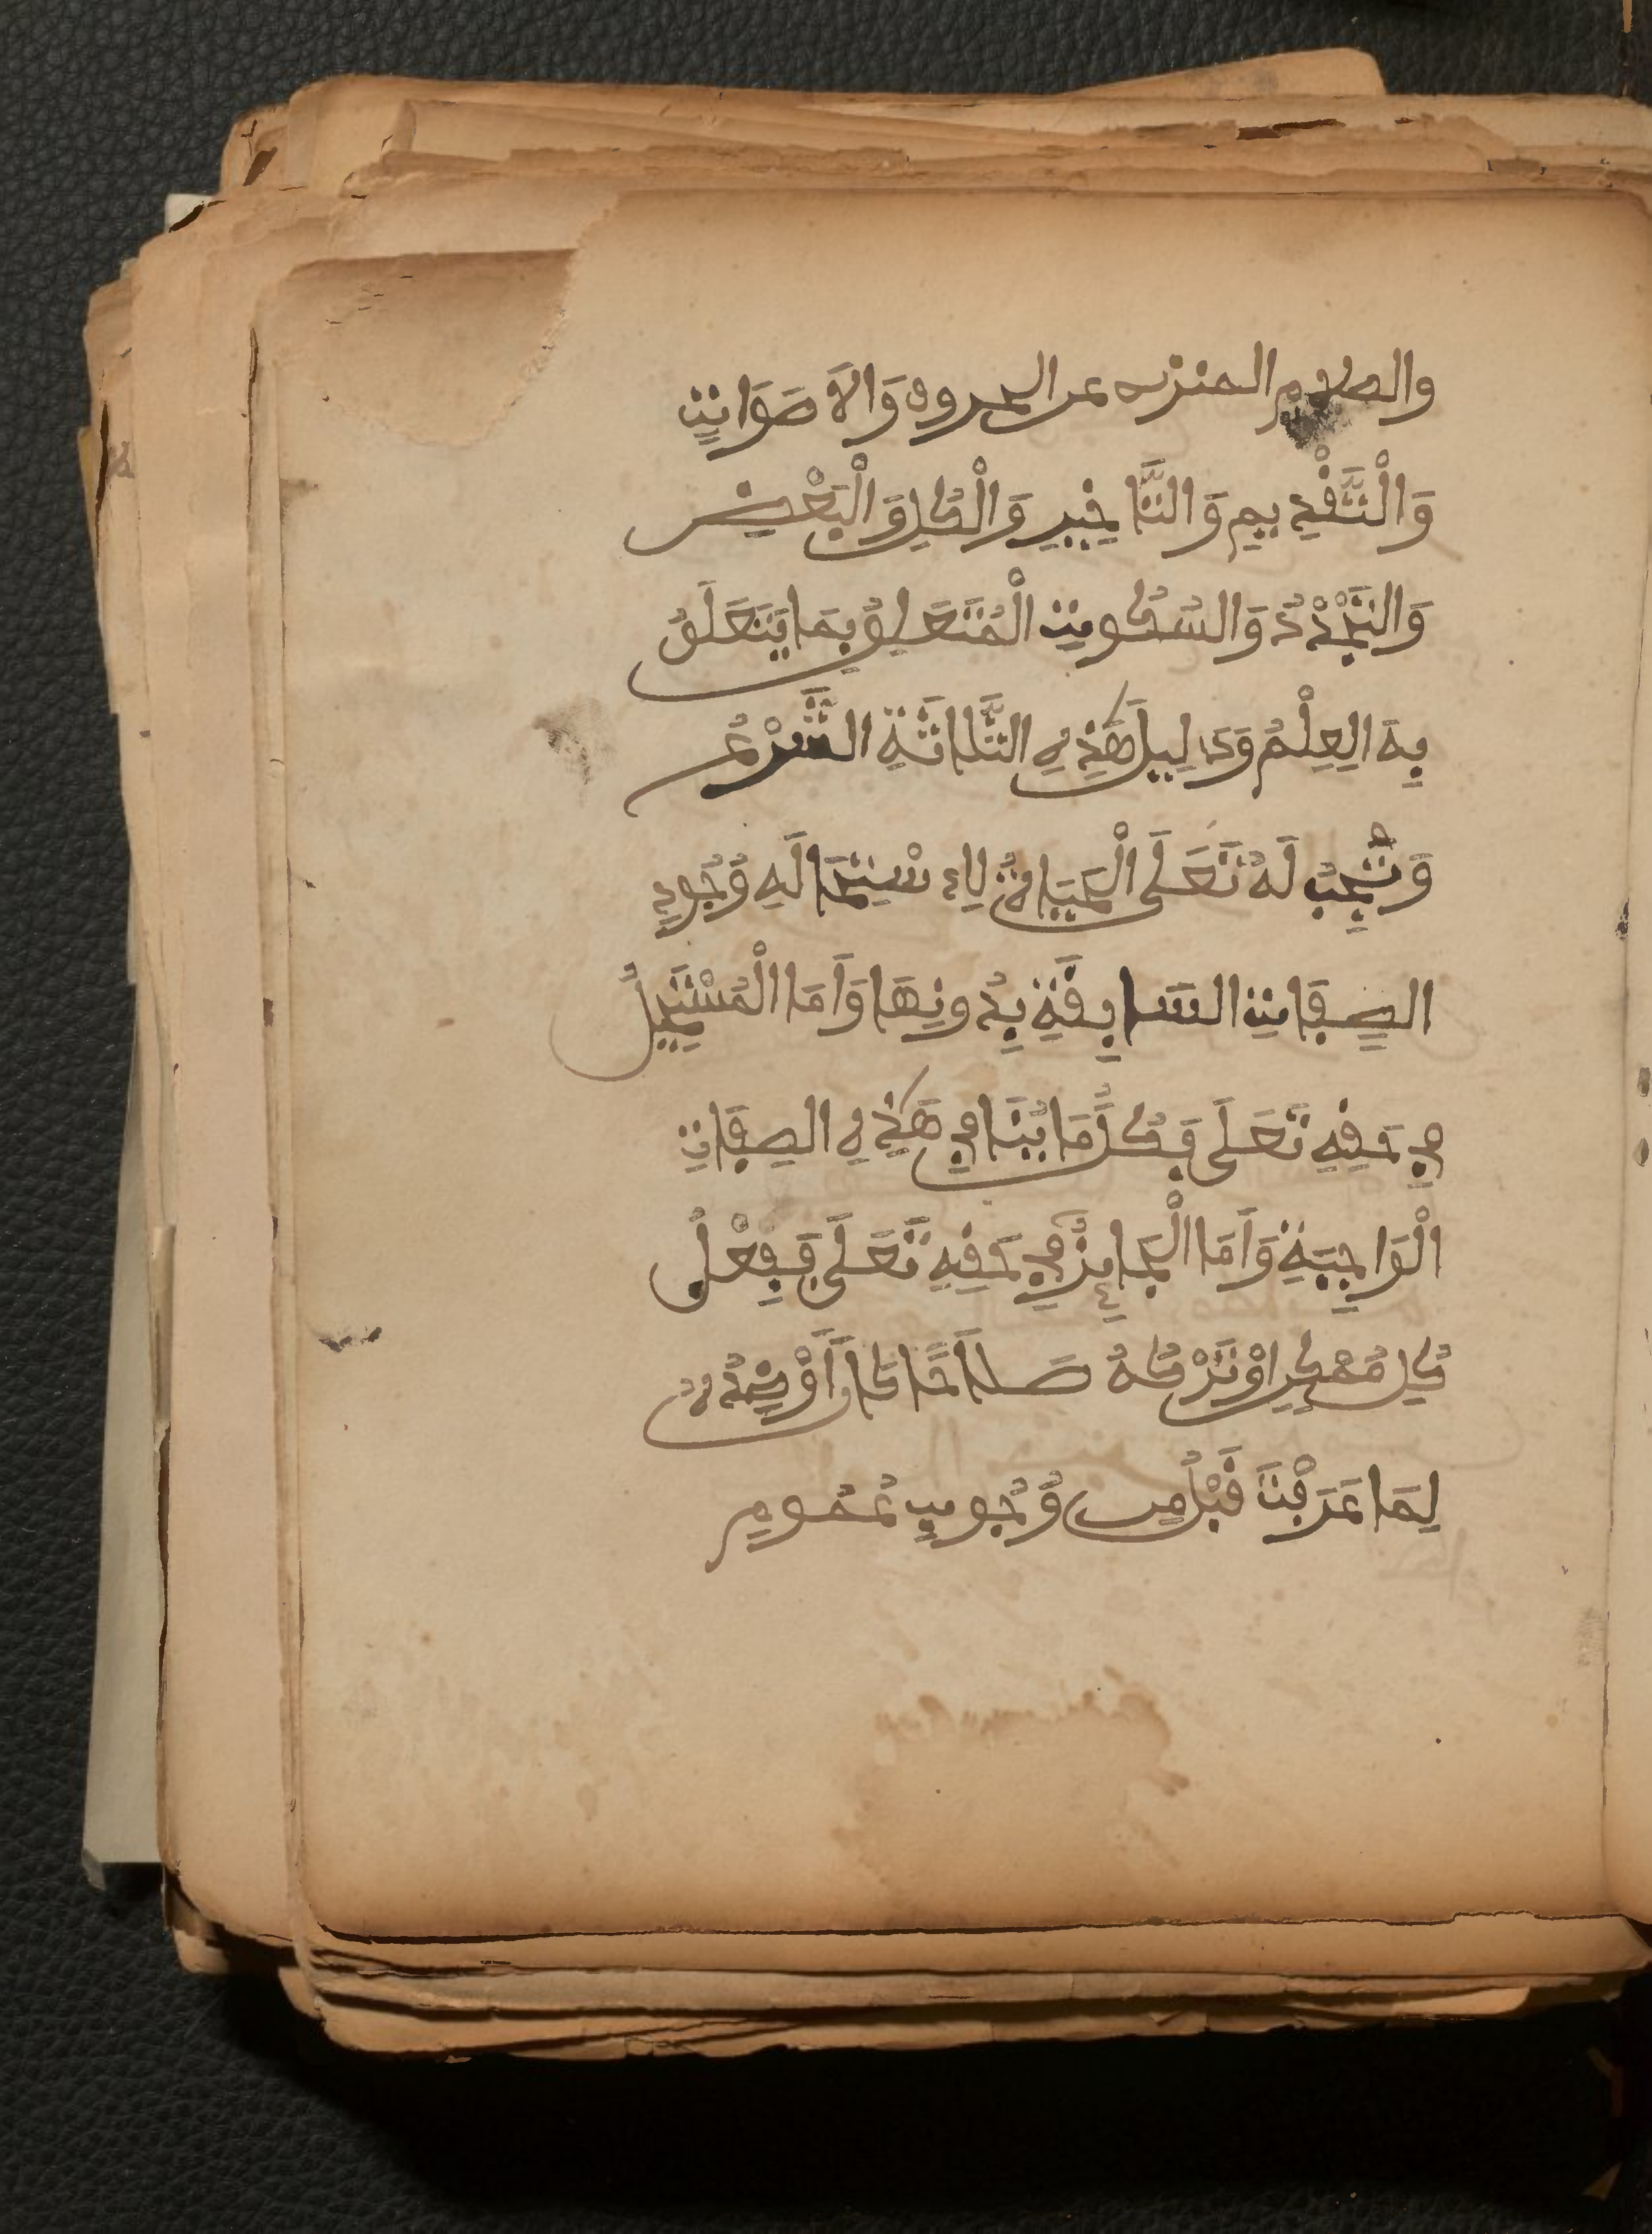 والكلام المنزه عن الحروف وَالاَصَوَاتِ
وَالْتَّقْدِيمِ وَالتَّاخِيرِ وَالْكُلِ وَالْبَعْضِ
وَالتَّجْدْدُ وَالسُكُوتِ الْمُتَعَلِقُ بِمَا يَتَعَلَقُ
بِهَ الِعِلْمُ وَدَلِيلُ هَذِهِ الثَّلَاثَةِ الشَّرْعُ
وَتَجِبُ لَهُ تَعَلَى الْحَيَاةُ لِاءسْتِحَالَهِ وُجُودِ
الصِفَاتِ السَابِقَةِ بِدُونِهَا وَأَمَا الْمُسْتَحِيلُ
فِي حَقِهِ تَعَلَى فَكُلُّ مَا يُنَافِي هَذِهِ الصِفَاتِ
الْوَاجِبَةِ وَأَمَا الْجَائِزُ فِي حَقِهِ تَعَلَى فَفِعْلُ
كُلِ مُمْكِنِ اوْتَرْكُهُ صَلَاحًا كَانَ أَوْ ضِدُهُ
لِمَا عَرَفْتَ قَبْلُ مِن وُجُوبِ عُمُومِ